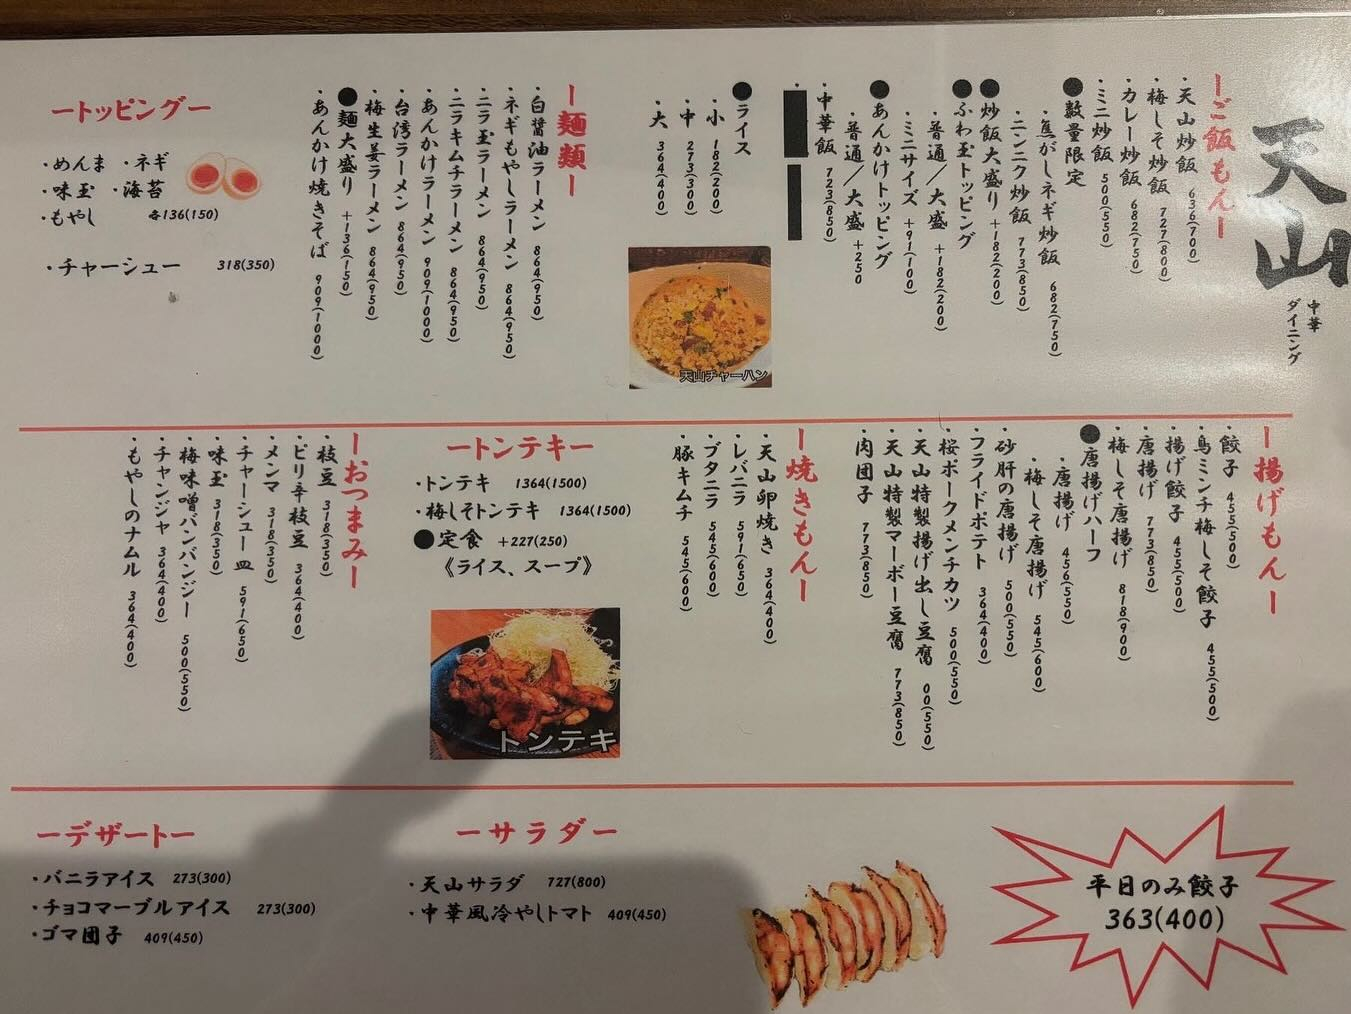 天山
中華
ダイニング
ーご飯もんー
・天山炒飯 636(700)
・梅しそ炒飯 727(800)
・カレー炒飯 682(750)
・ミニ炒飯 500(550)
●数量限定
・焦がしネギ炒飯 682(750)
・ニンニク炒飯 773(850)
●炒飯大盛り +182(200)
●ふわ玉トッピング
・普通/大盛 +182(200)
・ミニサイズ +91(100)
●あんかけトッピング
・普通/大盛 +250
・中華飯 723(850)
●ライス
・小 182(200)
・中 273(300)
・大 364(400)
天山チャーハン
ー麺類ー
・白醤油ラーメン 864(950)
・ネギもやしラーメン 864(950)
・ニラ玉ラーメン 864(950)
・ニラキムチラーメン 864(950)
・あんかけラーメン 909(1000)
・台湾ラーメン 864(950)
・梅生姜ラーメン 864(950)
●麺大盛り +136(150)
・あんかけ焼きそば 909(1000)
ートッピングー
・めんま ・ネギ
・味玉 ・海苔
・もやし 各136(150)
・チャーシュー 318(350)
ー揚げもんー
・餃子 455(500)
・鳥ミンチ梅しそ餃子 455(500)
・揚げ餃子 455(500)
・唐揚げ 773(850)
・梅しそ唐揚げ 818(900)
●唐揚げハーフ
・唐揚げ 456(550)
・梅しそ唐揚げ 545(600)
・砂肝の唐揚げ 500(550)
・フライドポテト 364(400)
・桜ポークメンチカツ 500(550)
・天山特製揚げ出し豆腐 00(550)
・天山特製マーボー豆腐 773(850)
・肉団子 773(850)
ー焼きもんー
・天山卵焼き 364(400)
・レバニラ 591(650)
・ブタニラ 545(600)
・豚キムチ 545(600)
ートンテキー
・トンテキ 1364(1500)
・梅しそトンテキ 1364(1500)
●定食 +227(250)
《ライス、スープ》
トンテキ
ーおつまみー
・枝豆 318(350)
・ピリ辛枝豆 364(400)
・メンマ 318(350)
・チャーシュー皿 591(650)
・味玉 318(350)
・梅味噌バンバンジー 500(550)
・チャンジャ 364(400)
・もやしのナムル 364(400)
ーデザートー
・バニラアイス 273(300)
・チョコマーブルアイス 273(300)
・ゴマ団子 409(450)
ーサラダー
・天山サラダ 727(800)
・中華風冷やしトマト 409(450)
平日のみ餃子
363(400)